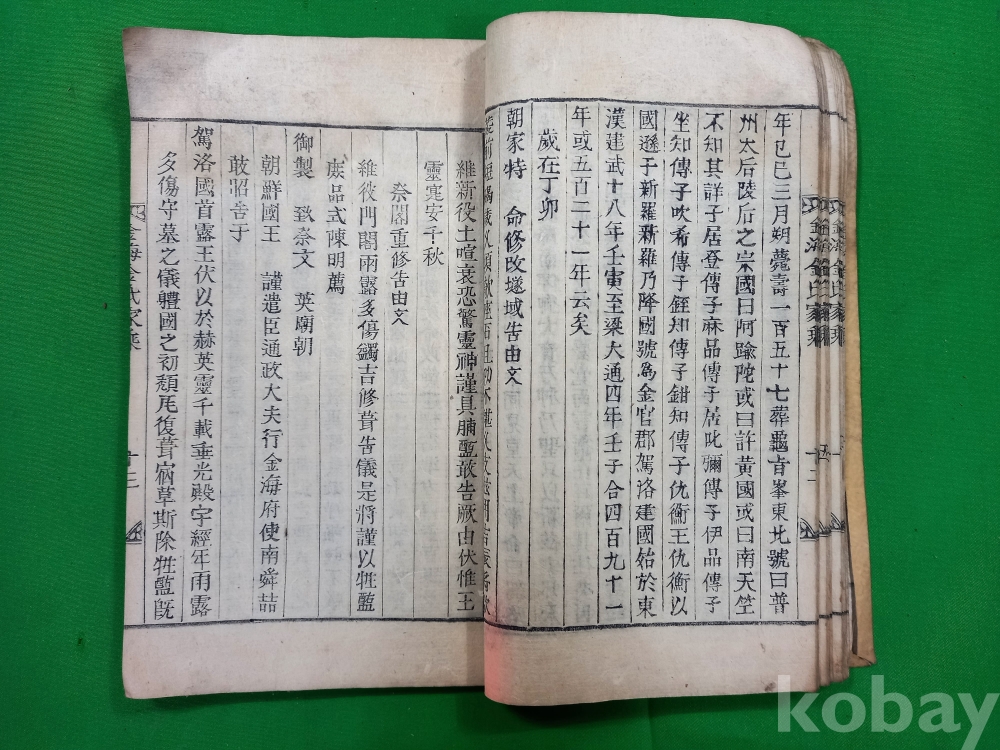 年己巳三月朔薨壽一百五十七葬龜旨峯東北號曰普
州太后陵后之宗國曰阿踰陀或曰許黃國或曰南天竺
不知其詳子居登傳子麻品傳子居叱彌傳子伊品傳子
坐知傳子吹希傳子銍知傳子鉗知傳子仇衡王仇衡以
國遜于新羅新羅乃降國號為金官郡駕洛建國始於東
漢建武十八年壬寅至梁大通四年壬子合四百九十一
年或五百二十一年云矣
歲在丁卯
朝家特 命修改塋域告由文
維新役土喧衰恐驚靈神謹具脯醢敢告厥由伏惟王
靈寔安千秋
祭閣重修告由文
維彼門閣雨露多傷蠲吉修葺告儀是將謹以牲醢
庶品式陳明薦
御製 致祭文 英廟朝
朝鮮國王 謹遣臣通政大夫行金海府使南舜喆
敢昭告于
駕洛國首露王伏以於赫英靈千載垂光殿宇經年雨露
多傷守墓之儀軆國之初頹瓦復葺宿草斯除牲醢旣
金海金氏家乘
十三
金海金氏家乘
kobay